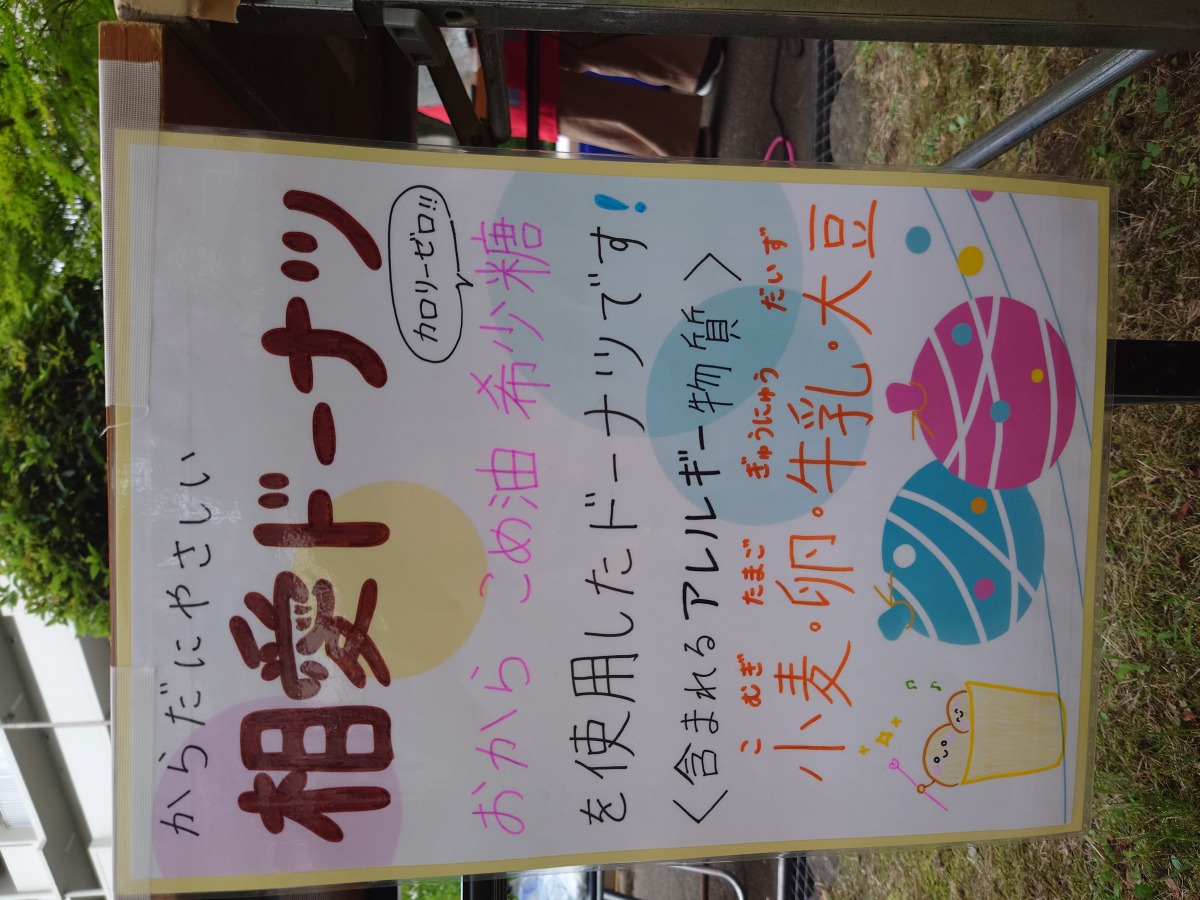 からだにやさしい
相愛ドーナツ
カロリーゼロ!!
おから こめ油 希少糖
を使用したドーナツです!
<含まれるアレルギー物質>
こ むぎ たまご ぎゅうにゅう だいず
小麦・卵・牛乳・大豆